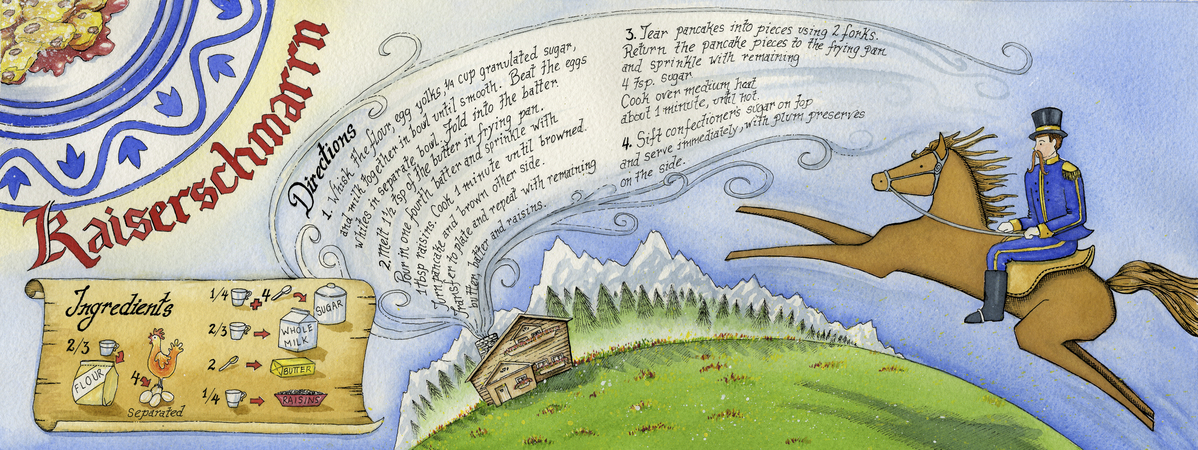 Kaiserschmarrn
Ingredients
2/3
FLOUR
4
Separated
1/4
+4
SUGAR
2/3
WHOLE
MILK
2
BUTTER
1/4
RAISINS
Directions
1. Whisk the flour, egg yolks, ¼ cup granulated sugar,
and milk together in bowl until smooth. Beat the eggs
whites in separate bowl. Fold into the batter.
2. Melt 1½ tsp of the butter in frying pan.
Pour in one fourth batter and sprinkle with
1 tbsp raisins. Cook 1 minute until browned.
Turn pancake and brown other side.
Transfer to plate and repeat with remaining
butter, batter and raisins.
3. Tear pancakes into pieces using 2 forks.
Return the pancake pieces to the frying pan
and sprinkle with remaining
4 tsp. sugar
Cook over medium heat
about 1 minute, until hot.
4. Sift confectioner's sugar on top
and serve immediately, with plum preserves
on the side.